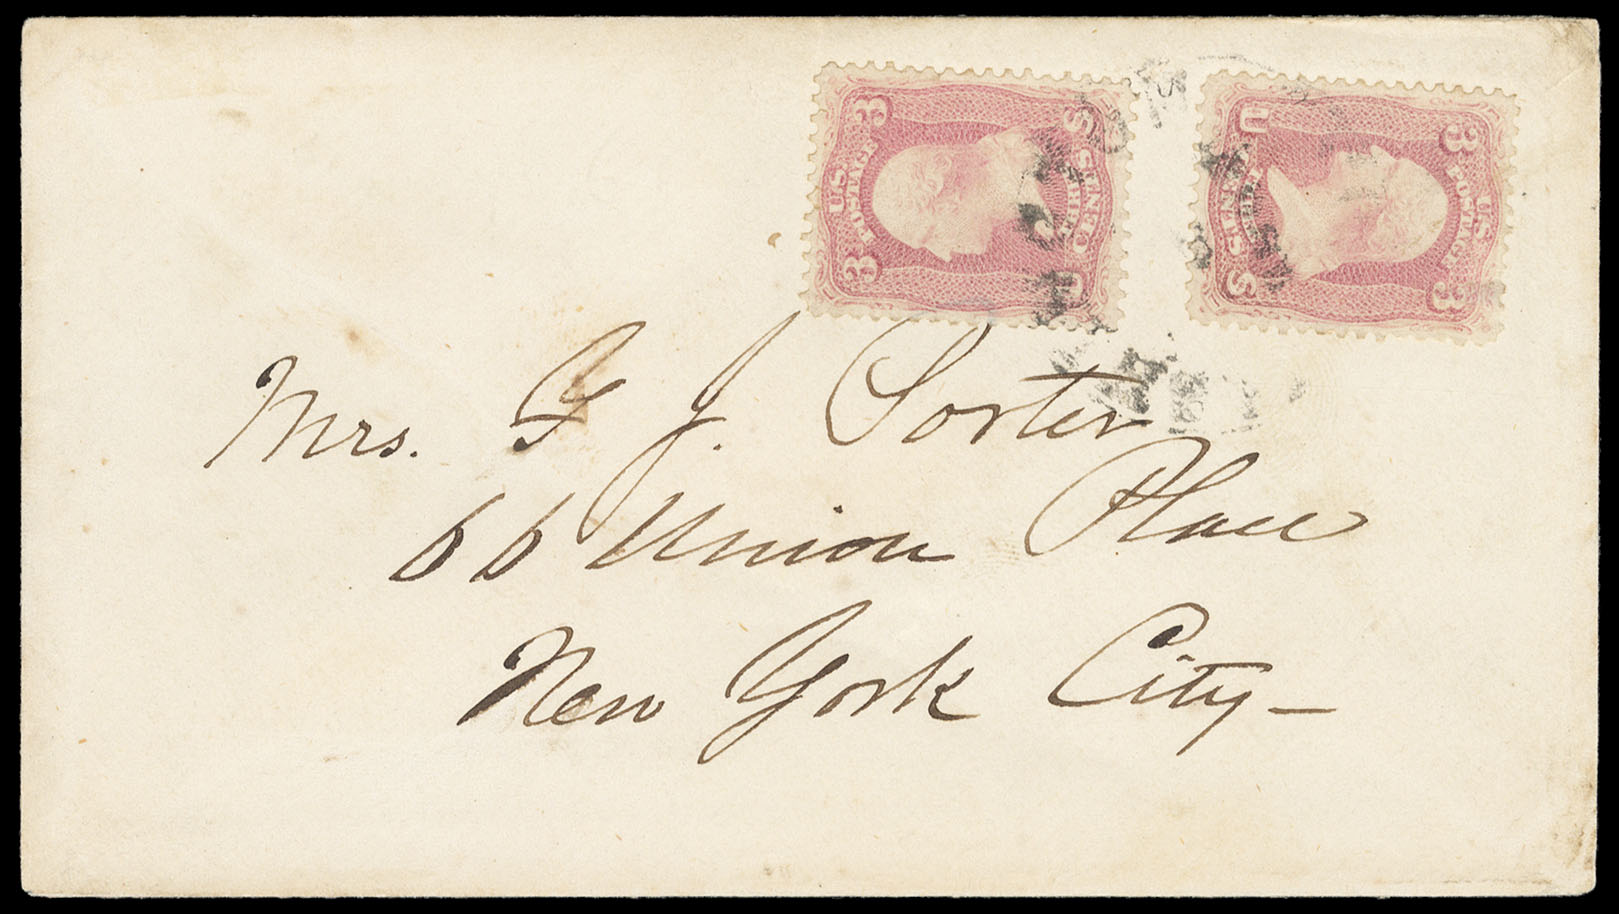 3 3
U.S. POSTAGE
THREE CENTS
3 3
U.S. POSTAGE
THREE CENTS
U S
Mrs. G J. Sorter
66 Union Place
New York City-